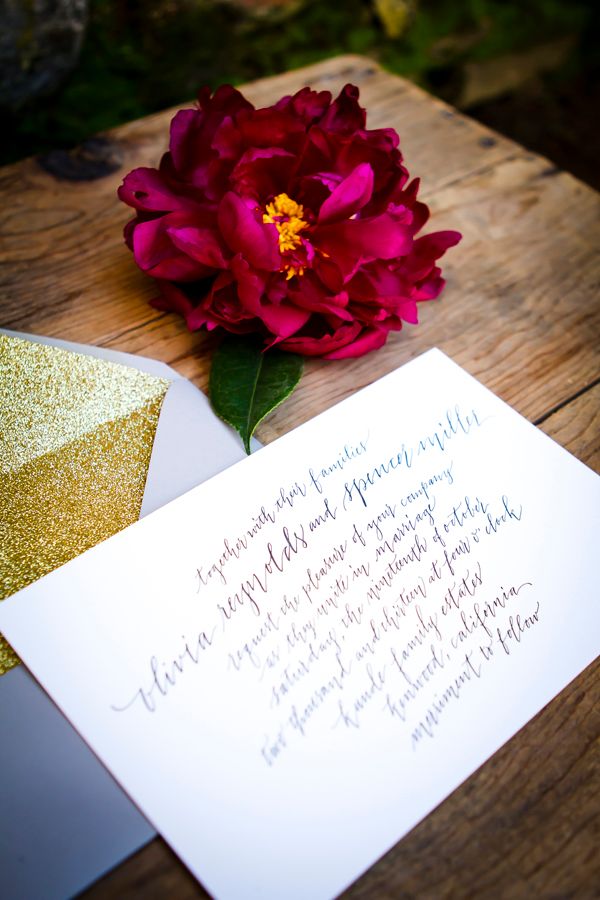 together with their families
olivia reynolds and spencer miller
request the pleasure of your company
as they unite in marriage
saturday, the nineteenth of october
two thousand and thirteen at four o'clock
family estates
california
merriment to follow